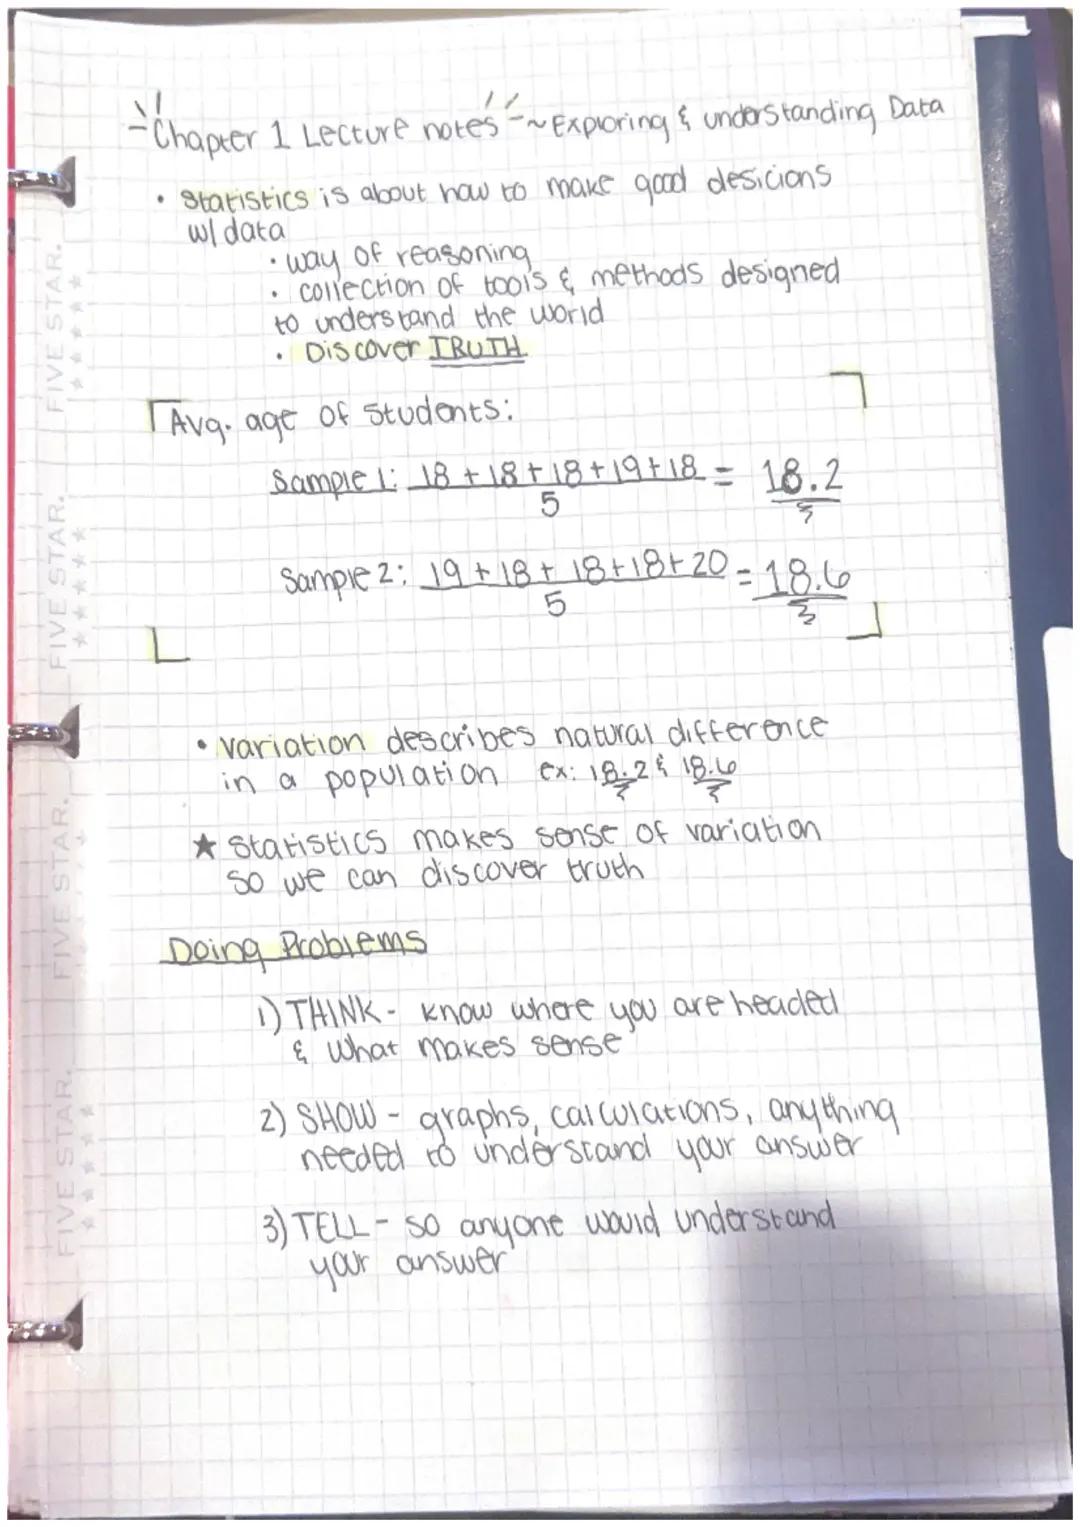 Chapter 1 Lecture notes ~ Exploring & understanding Data
• Statistics is about how to make good desicions
w/ data
• way of reasoning
• collection of tools & methods designed
to understand the world
• Discover TRUTH
Avg. age of students:
Sample 1: 18 + 18 + 18 + 19 + 18 = 18.2
5
Sample 2: 19 + 18 + 18 + 18 + 20 = 18.6
5
• variation describes natural difference
in a population ex: 18.2 & 18.6
★ Statistics makes sense of variation
so we can discover truth
Doing Problems
1) THINK - know where you are headed
& what makes sense
2) SHOW - graphs, calculations, anything
needed to understand your answer
3) TELL - so anyone would understand
your answer
FIVE STAR.
FIVE STAR.
FIVE STAR.
FIVE STAR.